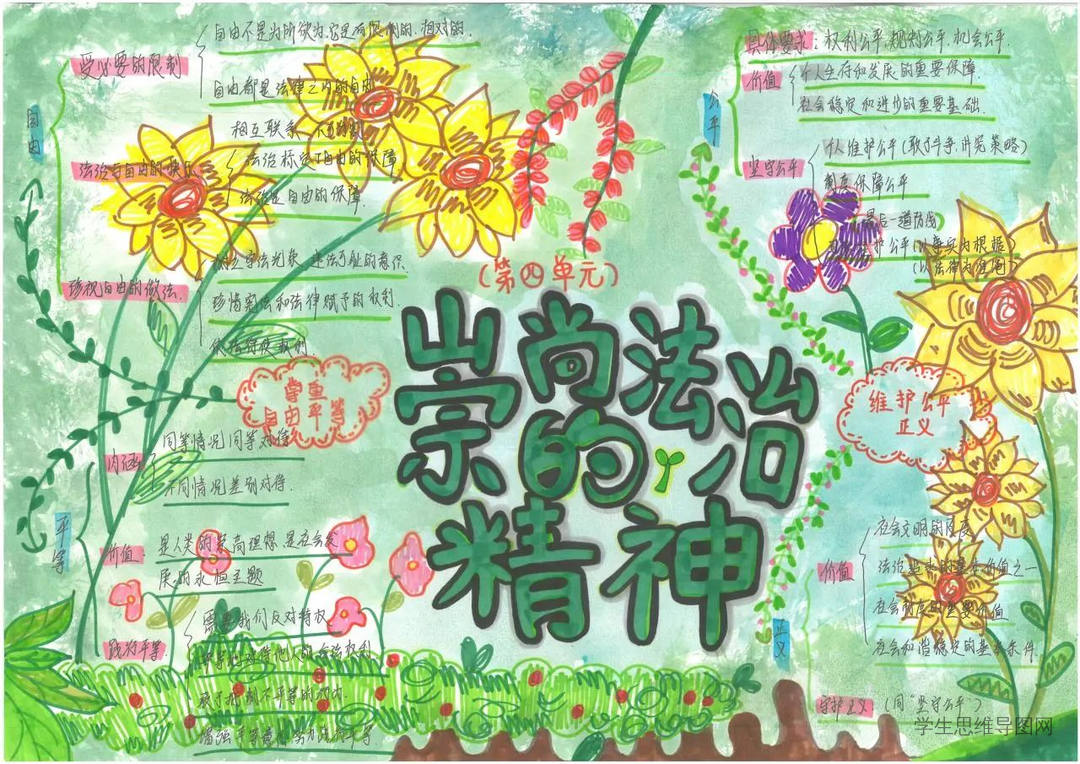 (第四单元)
崇尚法治
的
精神
尊重
自由平等
自由
受必要的限制
自由不是为所欲为,它是有限制的、相对的.
自由都是法律之内的自由
法治与自由的关系
相互联系、不可分割
法治标定了自由的保障
法治是自由的保障.
珍视自由的做法.
珍惜宪法和法律赋予的权利.
平等
内涵
同等情况同等对待
不同情况差别对待.
价值:
是人类的崇高理想 是社会发
展的永恒主题
践行平等
需要我们反对特权
维护公平
正义
公平
具体要求:权利公平、规则公平、机会公平.
价值
个人生存和发展的重要保障.
社会稳定和进步的重要基础.
坚守公平
个人维护公平(敢于斗争,讲究策略)
制度保障公平
最后一道防线
护公平(以事实为根据)
(以法律为准绳)
正义
价值
社会文明的尺度
法治 价值之一
社会制度的重要价值
社会和谐稳定的基本条件.
守护正义:(同“坚守公平”)
学生思维导图网